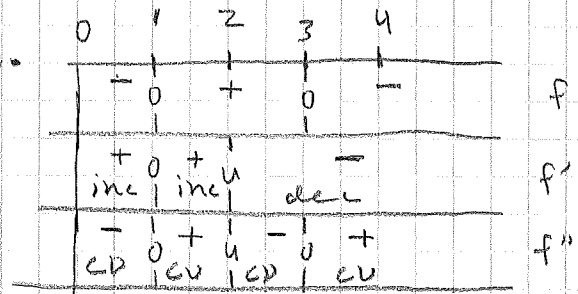 0 1 2 3 4
- 0 + 0 - f
+ 0 + u - f'
inc inc dec
- 0 + u - 0 + f"
CD CU CD CU